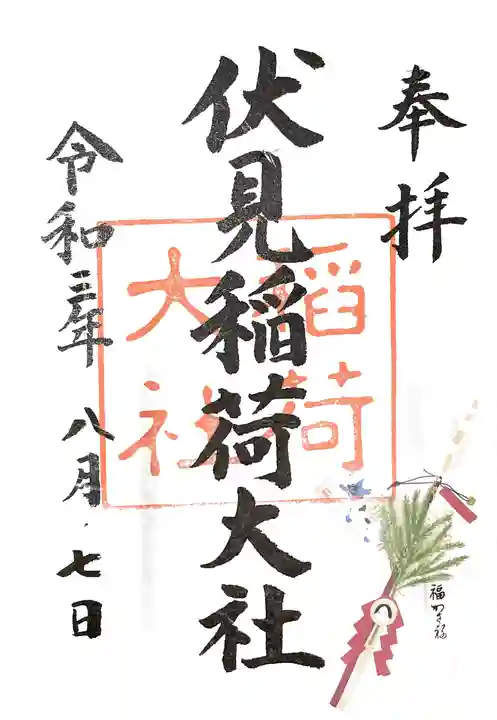 奉拝
伏見稲荷大社
稲荷
大社
令和三年八月七日
福かさね